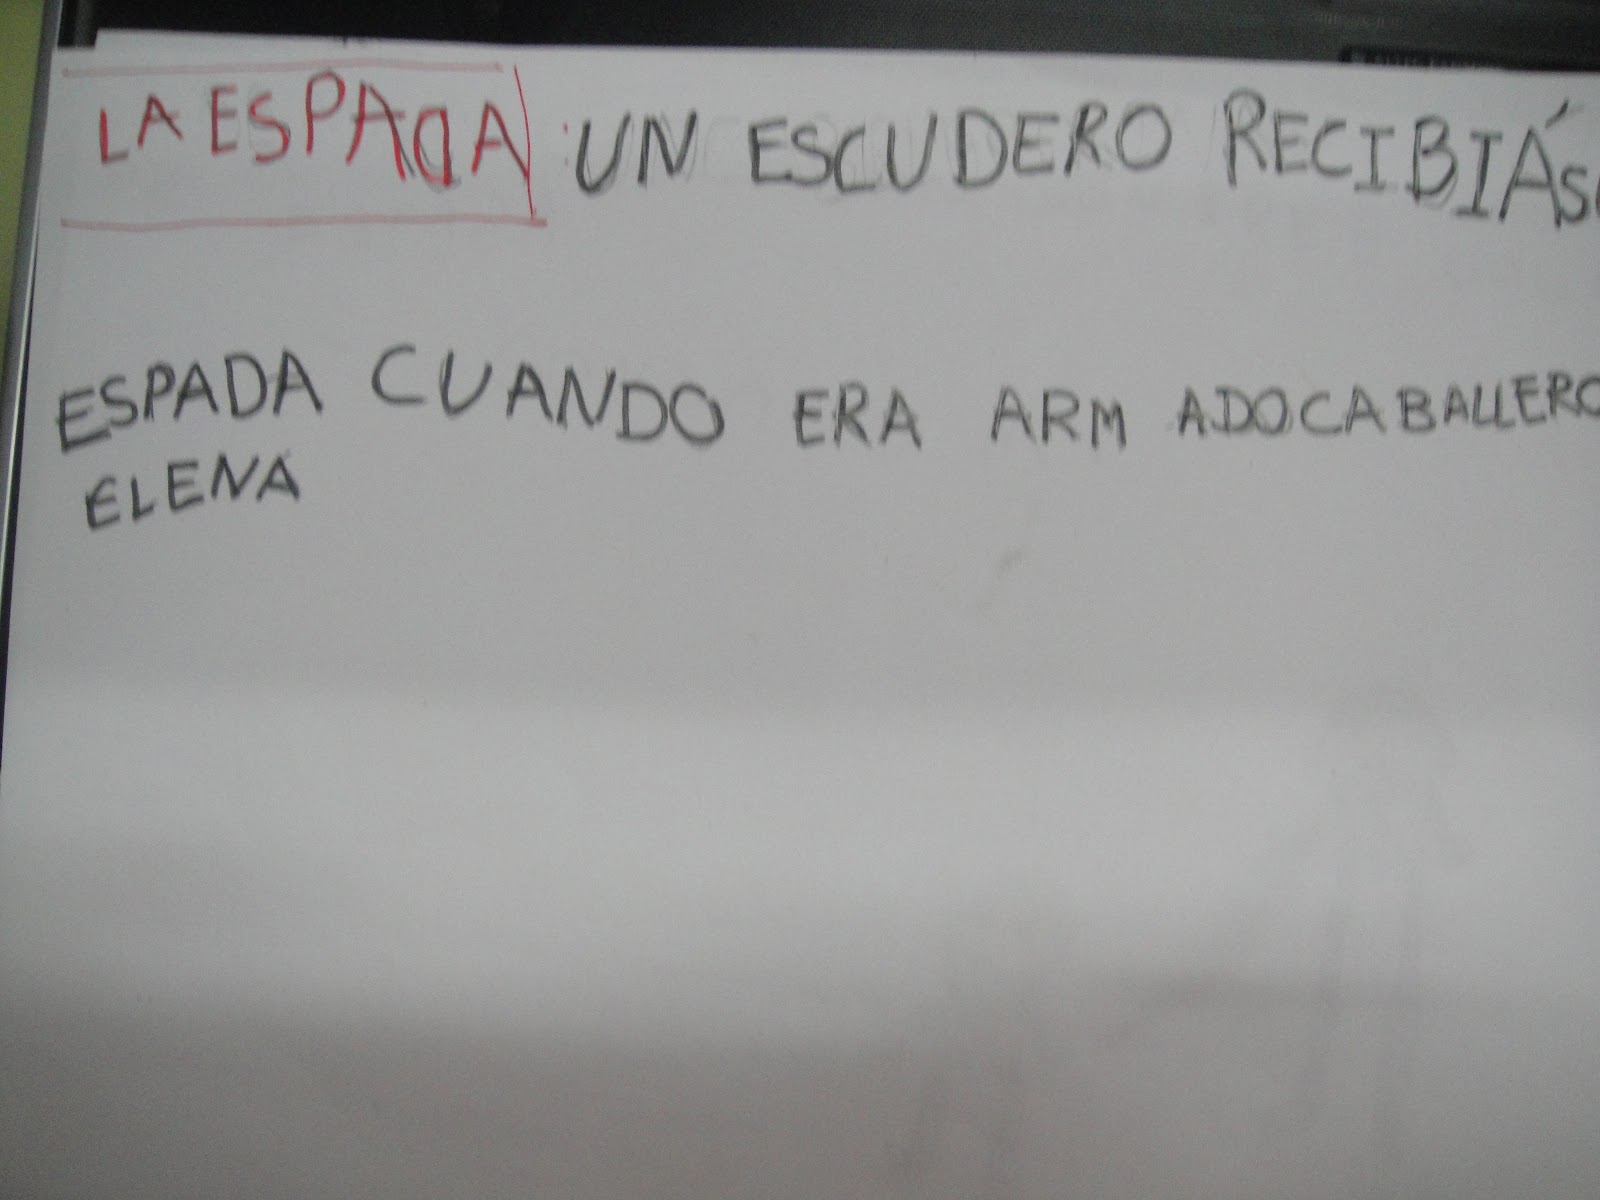 LA ESPADA: UN ESCUDERO RECIBIÁS
ESPADA CUANDO ERA ARM ADOCABALLERO
ELENA